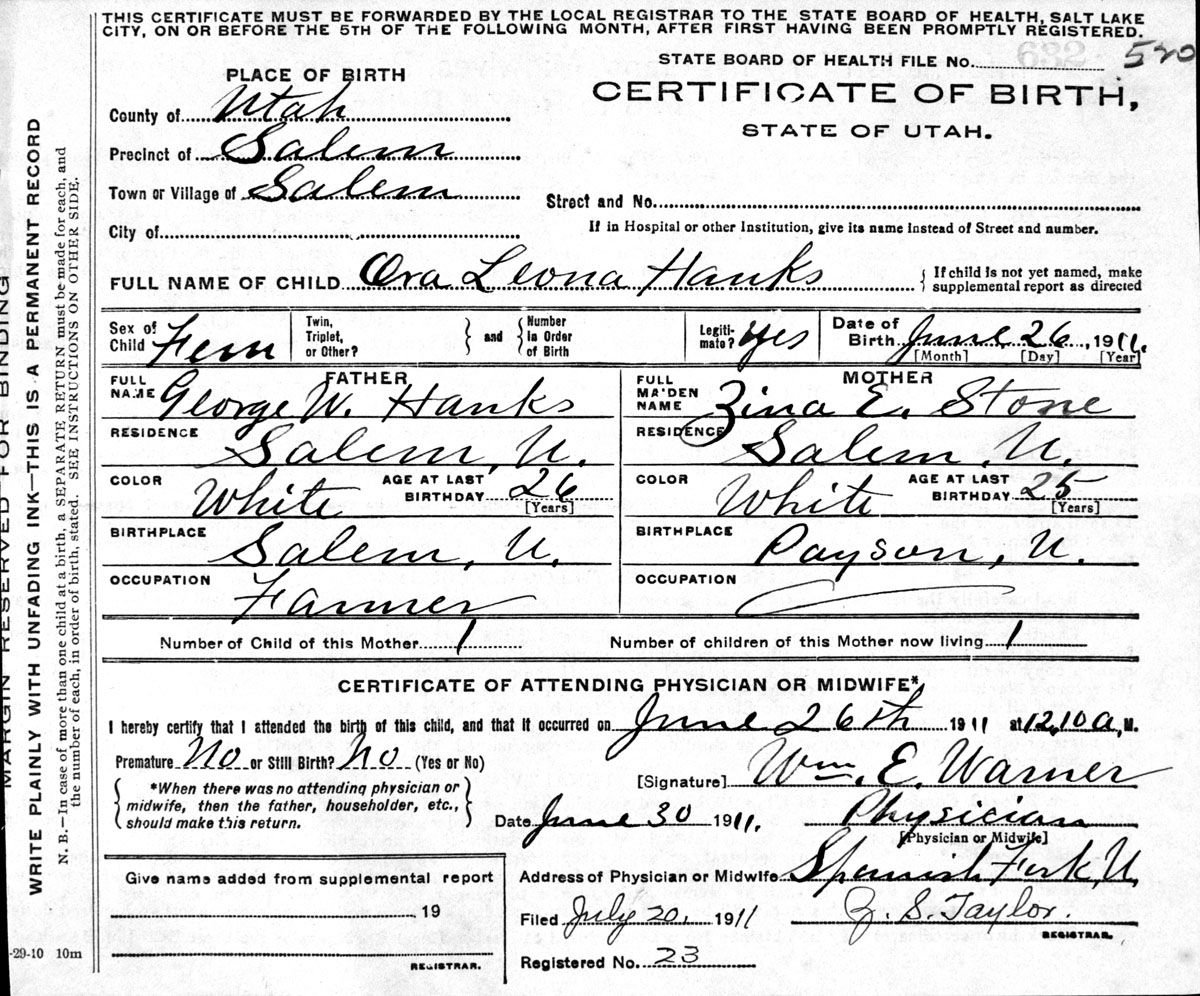 THIS CERTIFICATE MUST BE FORWARDED BY THE LOCAL REGISTRAR TO THE STATE BOARD OF HEALTH, SALT LAKE
CITY, ON OR BEFORE THE 5TH OF THE FOLLOWING MONTH, AFTER FIRST HAVING BEEN PROMPTLY REGISTERED.
STATE BOARD OF HEALTH FILE No. 520
PLACE OF BIRTH
CERTIFICATE OF BIRTH,
STATE OF UTAH.
County of Utah
Precinct of Salem
Town or Village of Salem
Street and No.
City of
If in Hospital or other Institution, give its name instead of Street and number.
FULL NAME OF CHILD Ora Leona Hanks { If child is not yet named, make
supplemental report as directed
Sex of Child Fem
Twin, Triplet, or Other? } and { Number in Order of Birth
Legitimate? Yes
Date of Birth June 26, 1911.
[Month] [Day] [Year]
FATHER
FULL NAME George W. Hanks
MOTHER
FULL MAIDEN NAME Zina E. Stone
RESIDENCE Salem, U.
RESIDENCE Salem, U.
COLOR White AGE AT LAST BIRTHDAY 26 [Years]
COLOR White AGE AT LAST BIRTHDAY 25 [Years]
BIRTHPLACE Salem, U.
BIRTHPLACE Payson, U.
OCCUPATION Farmer
OCCUPATION
Number of Child of this Mother 1 Number of children of this Mother now living 1
CERTIFICATE OF ATTENDING PHYSICIAN OR MIDWIFE*
I hereby certify that I attended the birth of this child, and that it occurred on June 26th 1911 at 12,10 a, M.
Premature No or Still Birth? No (Yes or No)
[Signature] Wm. E. Warner
{ *When there was no attending physician or
midwife, then the father, householder, etc.,
should make this return. }
Date June 30 1911. Physician
[Physician or Midwife]
Give name added from supplemental report
, 19
REGISTRAR.
Address of Physician or Midwife Spanish Fork, U.
Filed July 20, 1911 Z. S. Taylor.
REGISTRAR.
Registered No. 23
-29-10 10m
MARGIN RESERVED FOR BINDING
WRITE PLAINLY WITH UNFADING INK—THIS IS A PERMANENT RECORD
N. B.—In case of more than one child at a birth, a SEPARATE RETURN must be made for each, and
the number of each, in order of birth, stated. SEE INSTRUCTIONS ON OTHER SIDE.